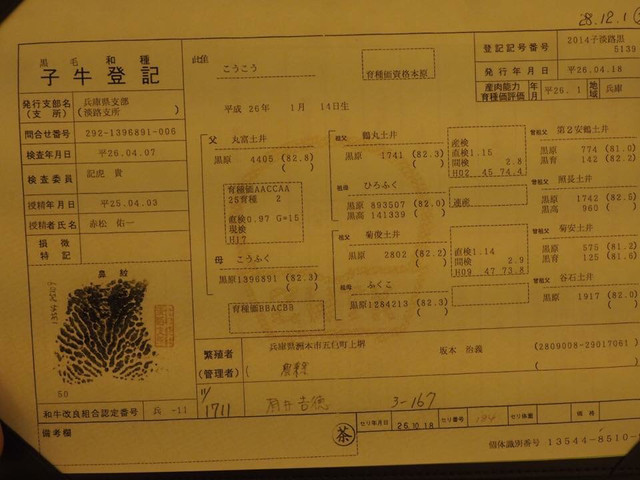 28.12.1
黒毛和種
子牛登記
発行支部名 (支所)
兵庫県支部
(淡路支所)
問合せ番号 292-1396891-006
検査年月日 平26.04.07
検査委員 記虎 貴
授精年月日 平25.04.03
授精者氏名 赤松 佑一
損徴
特記
鼻紋
50
和牛改良組合認定番号 兵 -11
備考欄
こうこう
育種価資格本原
平成 26年 1月 14日生
登記記号番号 2014子淡路黒
5139
発行年月日 平26.04.18
産肉能力
育種価評価 年月 平26.1 地域 兵庫
父 丸富土井
黒原 4405 (82.8)
育種価AACCAA
25育種 2
直検0.97 G=15
現検
H17
母 こうふく
黒原1396891 (82.3)
育種価BBACBB
祖父 鶴丸土井
黒原 1741 (82.3)
産検
直検1.15
間検 2.8
H02 45 74.4
祖母 ひろふく
黒原 893507 (82.0)
黒高 141339 ( )
産検
祖父 菊俊土井
黒原 2802 (82.2)
直検1.14
間検 2.9
H09 47 73.8
祖母 ふくこ
黒原1284213 (82.3)
曾祖父 第2安鶴土井
黒原 774 (81.0)
黒育 142 (82.2)
曾祖父 照長土井
黒原 1742 (82.5)
黒高 960 ( )
曾祖父 菊安土井
黒原 575 (81.2)
黒育 125 (81.6)
曾祖父 谷石土井
黒原 1917 (82.0)
繁殖者
(管理者)
兵庫県洲本市五色町上堺 坂本 治義 (2809008-29017061)
11/1711 3-167
茶
セリ年月日 26.10.18 セリ番号 セリ体重 価格
個体識別番号 13544-8510-